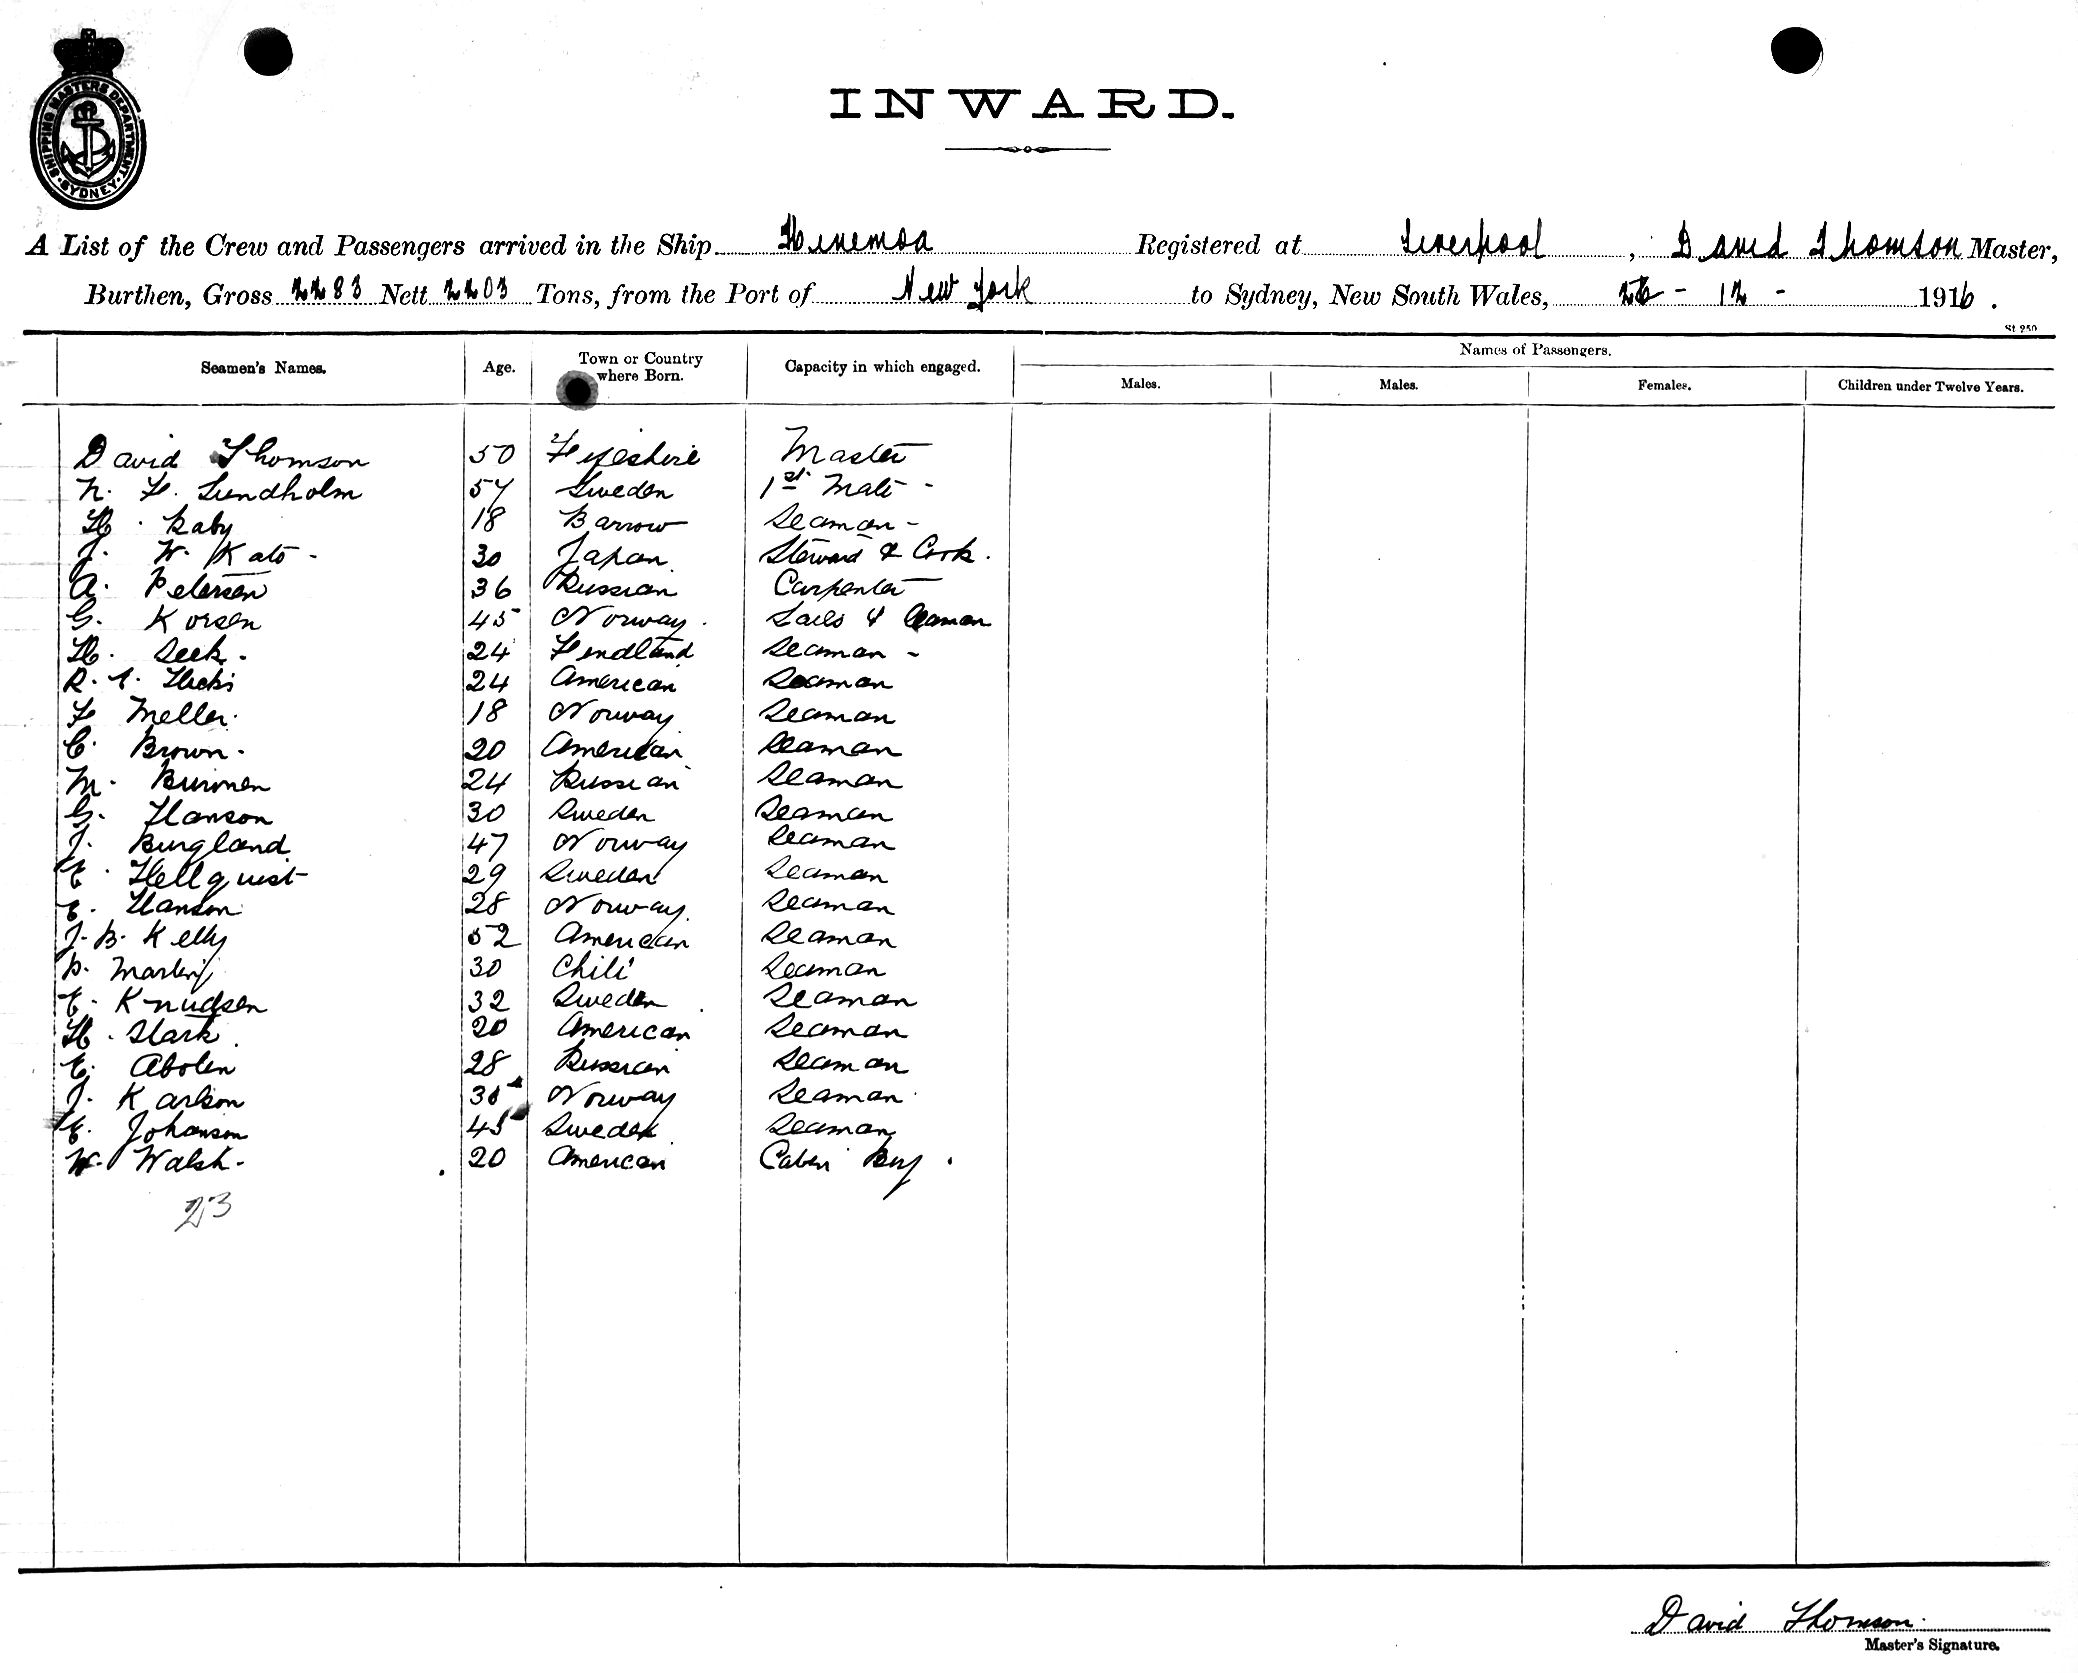 SHIPPING MASTERS DEPARTMENT
SYDNEY
INWARD.
A List of the Crew and Passengers arrived in the Ship Hinemoa Registered at Liverpool, David Thomson Master,
Burthen, Gross 2283 Nett 2203 Tons, from the Port of New York to Sydney, New South Wales, 12 - 1916.
St 250
Seamen's Names. Age. Town or Country where Born. Capacity in which engaged. Names of Passengers.
Males. Males. Females. Children under Twelve Years.
David Thomson 50 Fifeshire Master
N. F. Lundholm 57 Sweden 1st Mate -
H. Raby 18 Barrow Seaman -
J. W. Kato - 30 Japan. Steward & Cook.
A. Petersen 36 Russian Carpenter
G. Korsen 45 Norway. Sails & Seaman
H. Seek. 24 Findland Seaman -
R. E. Hicks 24 American Seaman
F Meller. 18 Norway Seaman
C. Brown - 20 American Seaman
M. Burmen 24 Russian Seaman
G. Hanson 30 Sweden Seaman
J. Burgland 47 Norway Seaman
E. Hellquist 29 Sweden Seaman
E. Hanson 28 Norway. Seaman
J. B. Kelly 52 American Seaman
30 Chili Seaman
E. Knudsen 32 Sweden Seaman
H. Stark. 20 American Seaman
E. Abolen 28 Russian Seaman
J. Karlson 35 Norway Seaman
E. Johanson 45 Sweden Seaman
W. Walsh. 20 American Cabin Boy.
23
David Thomson.
Master's Signature.